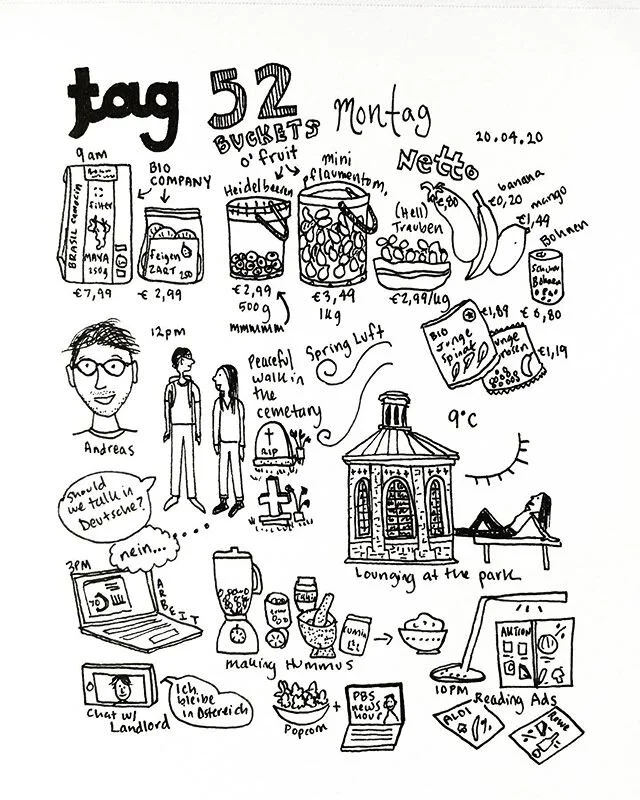 tag 52 Montag
BUCKETS
o' fruit
20.04.20
9am
BIO
COMPANY
BRASIL
filter
MAYA
250g
€7,99
feigen
ZART
250
€ 2,99
Heidelbeeren
€2,99
500g
mmmmmm
mini
pflaumentom.
€3,49
1kg
Netto
(Hell)
Trauben
€2,99/kg
€,80
banana
€0,20
mango
€1,49
Bohnen
Bohnen
€ 6,80
BIO
Junge
Spinat
€1,89
€1,19
12pm
Andreas
Should
we talk in
Deutsche?
nein...
Peaceful
walk in
the
cemetary
RIP
Spring Luft
9°C
Lounging at the park
3PM
ARBEIT
Tahini
Kumin
Making Hummus
Chat w/
Landlord
Ich
bleibe
in Östereich
Popcorn
+
PBS
news
hour
10PM
AKTION
Reading Ads
ALDI
%
Rewe